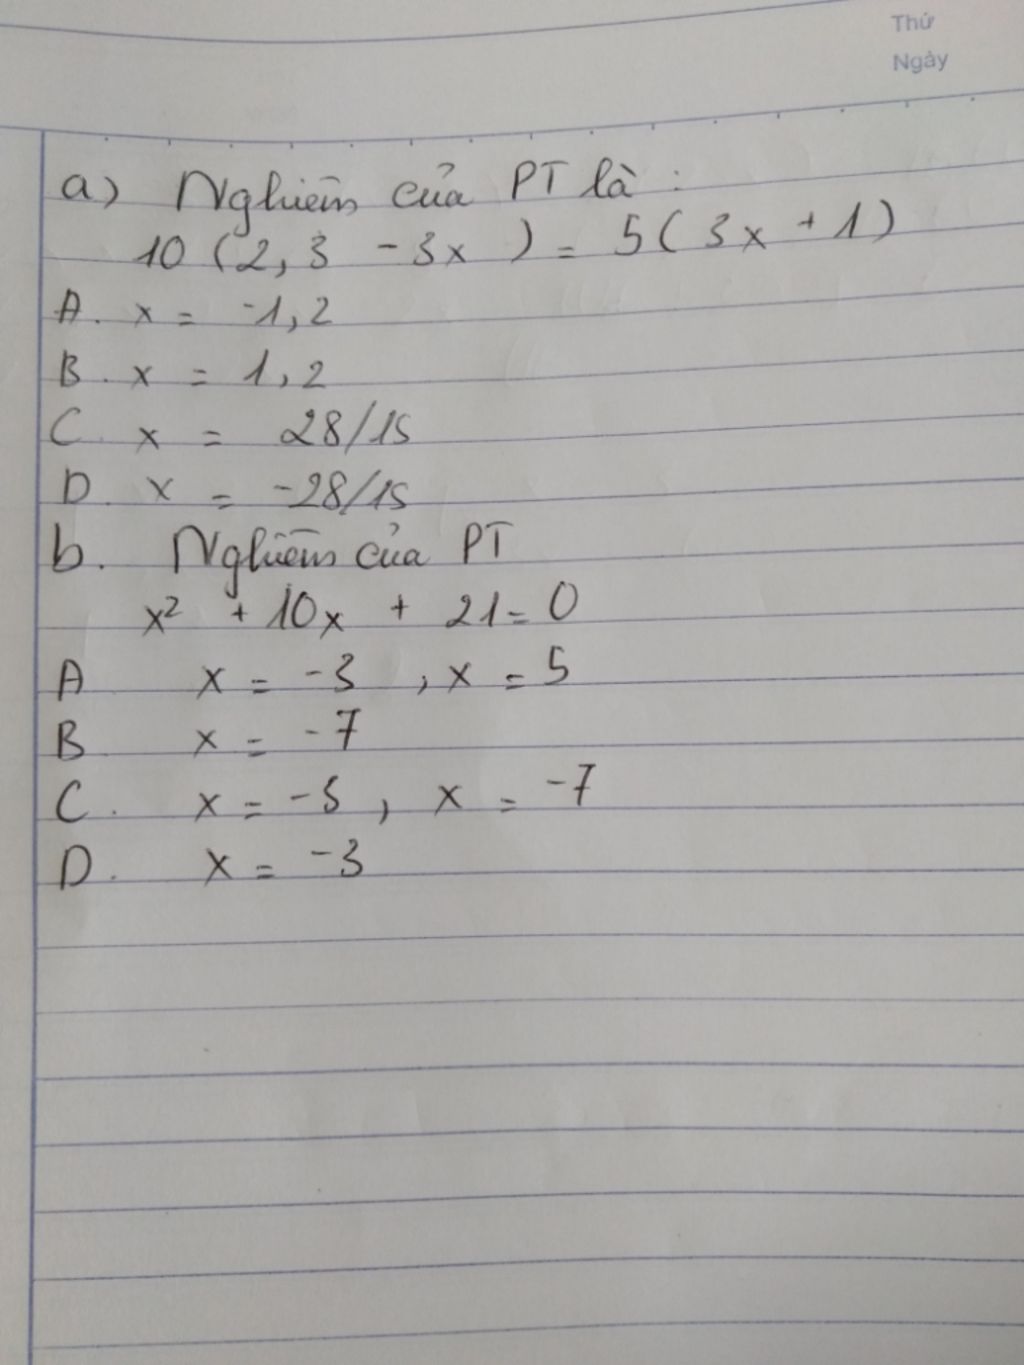 Thứ
Ngày
a) Nghiệm của PT là :
10 (2,3 - 3x) = 5(3x + 1)
A. x = -1,2
B. x = 1,2
C. x = 28/15
D. x = -28/15
b. Nghiệm của PT
x² + 10x + 21 = 0
A x = -3 , x = 5
B x = -7
C. x = -3 , x = -7
D. x = -3